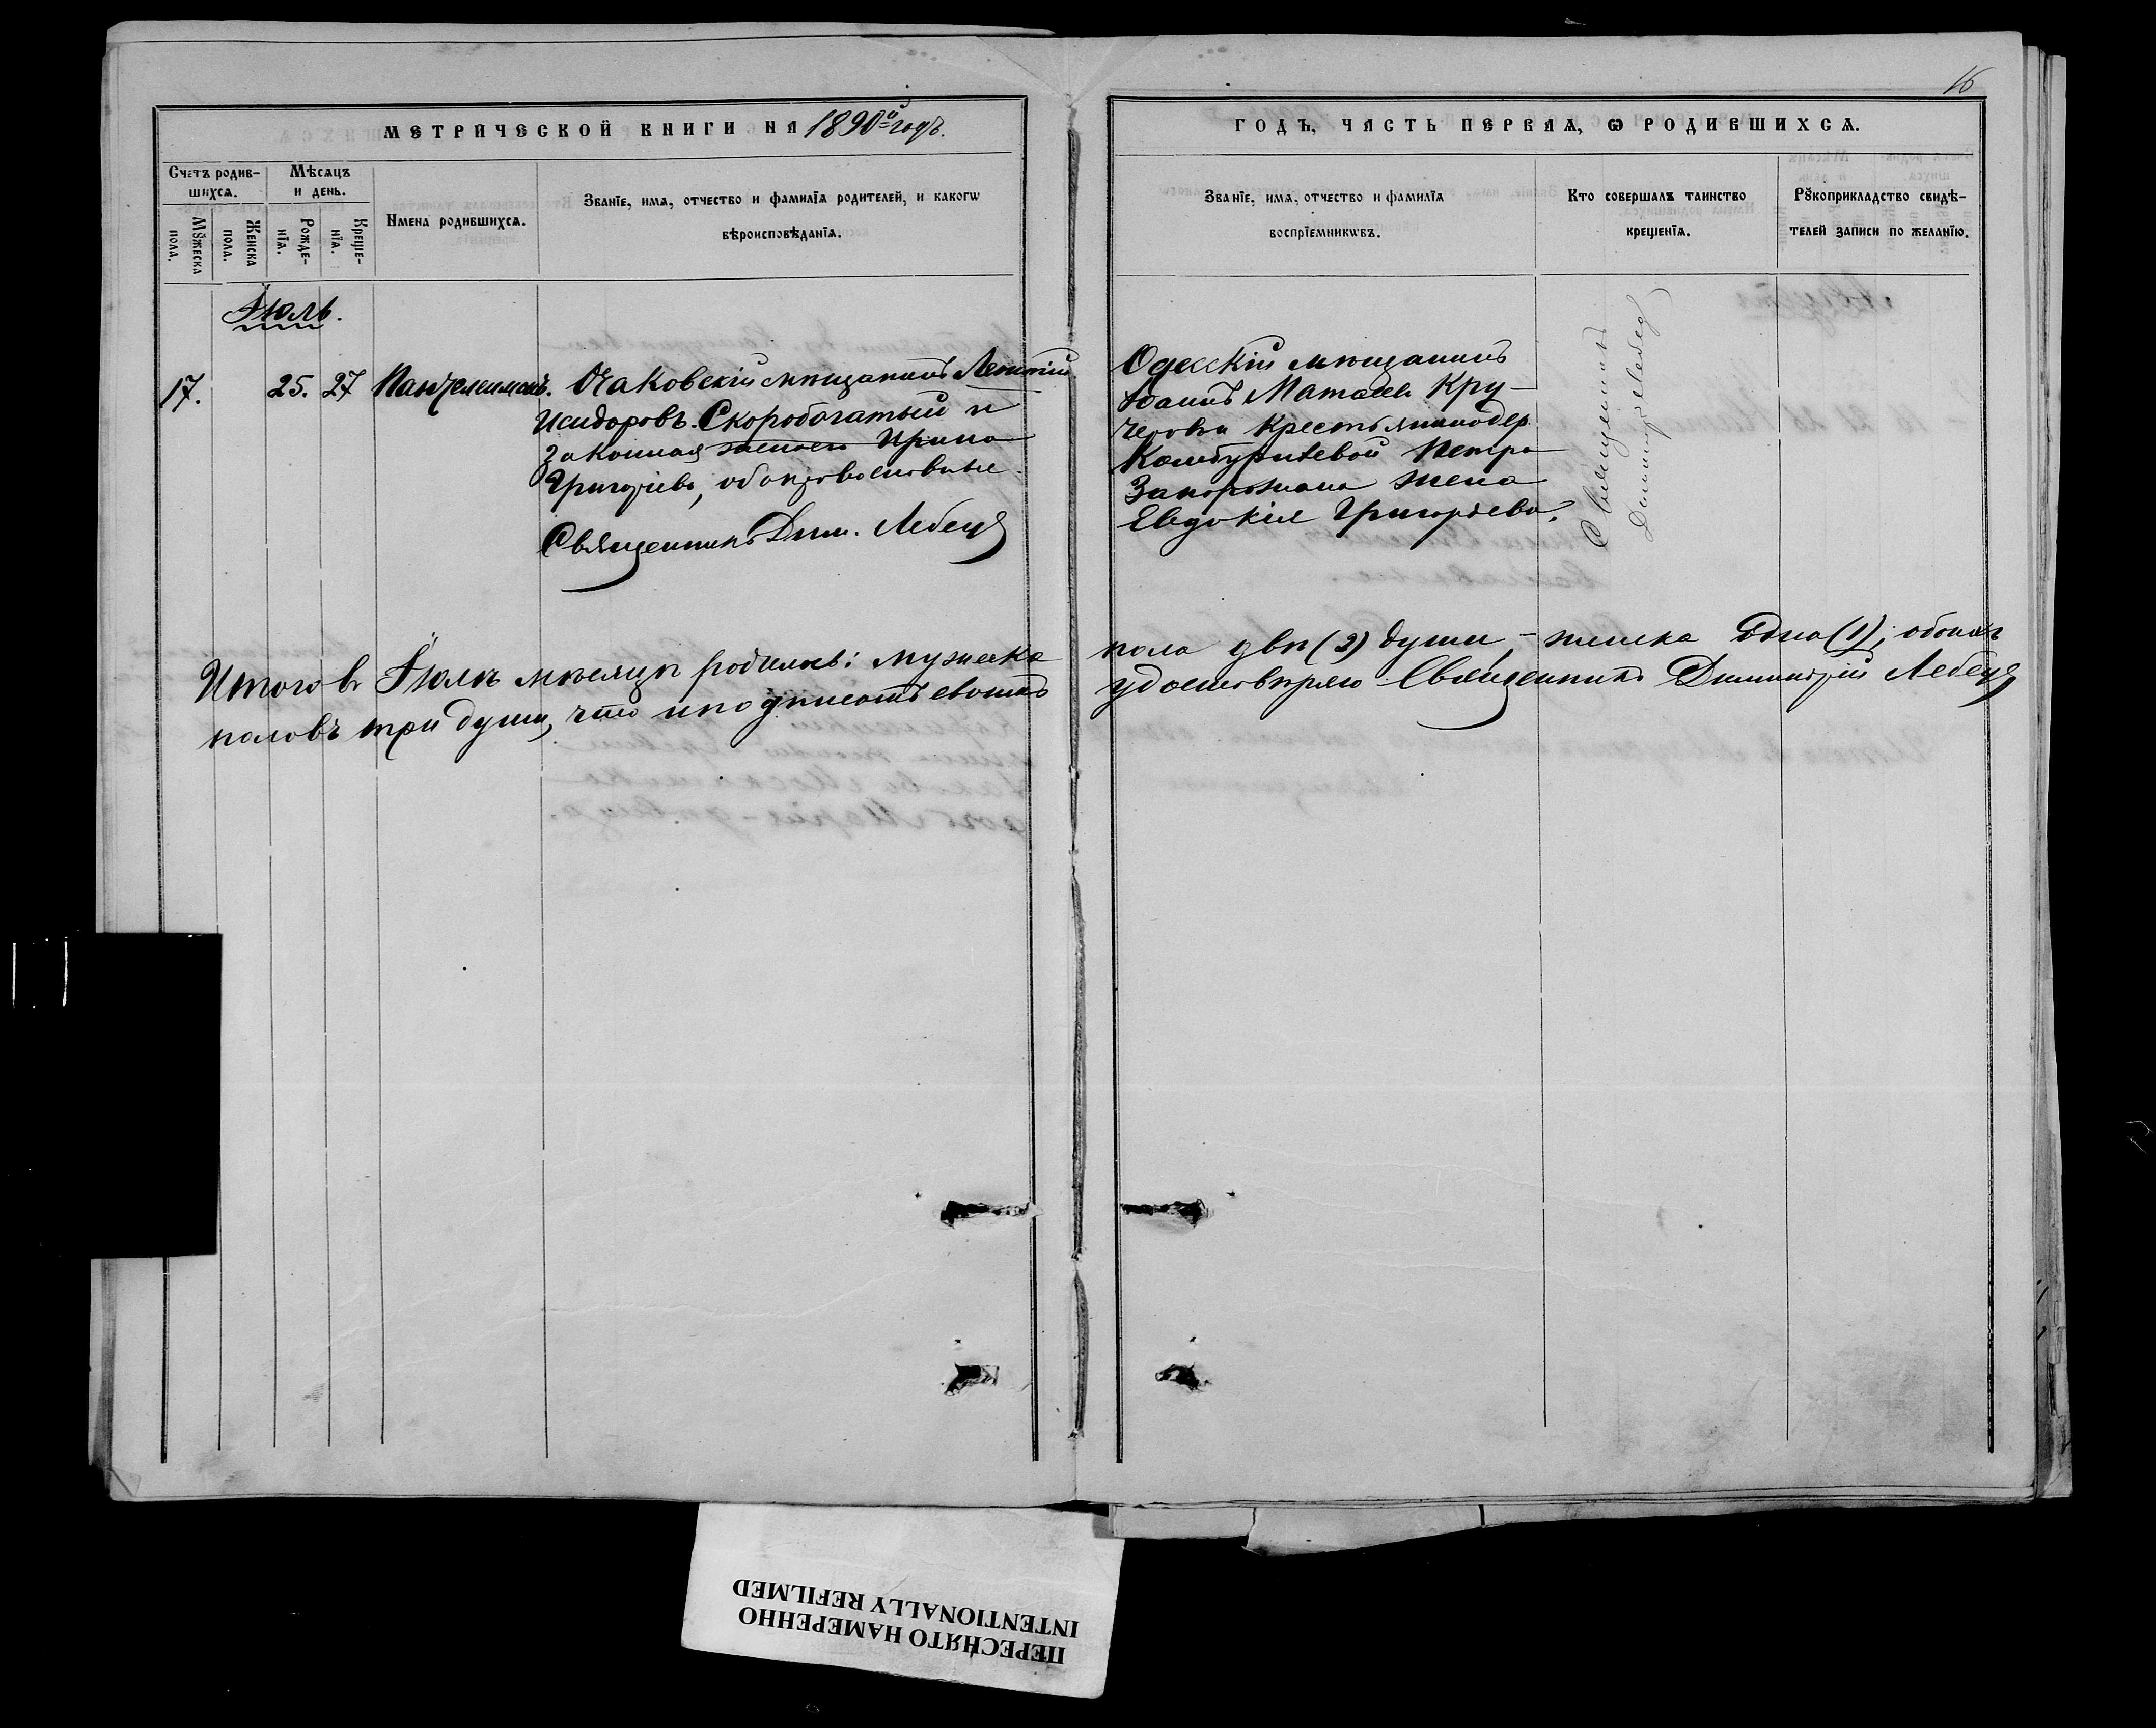 16
МЕТРИЧЕСКОЙ КНИГИ НА 1890й годъ.
ГОДЪ, ЧАСТЬ ПЕРВАЯ, Ѡ РОДИВШИХСѦ.
Счетъ родив-
шихсѧ.
Мѣсѧцъ
и день.
Мꙋжеска
пола.
Женска
пола.
Рожде-
нїѧ.
Креще-
нїѧ.
Имена родившихсѧ.
Званїе, имѧ, отчество и фамилїѧ родителей, и какогѡ
вѣроисповѣданїѧ.
Званїе, имѧ, отчество и фамилїѧ
воспрїемникѡвъ.
Кто совершалъ таинство
крещенїѧ.
Рꙋкоприкладство свидѣ-
телей записи по желанїю.
Іюль.
17. 25. 27 Пантелеимонъ.
Очаковскій мѣщанинъ Леонтій
Исидоровъ Скоробогатый и
законная жена его Ирина
Григорiева, оба православные.
Священникъ Дим. Лебедь
Одесскій мѣщанинъ
Іоаннъ Матѳеевъ Кру-
крестьянина дер.
Петра
Запорожана жена
Евдокія Григорьева.
Священникъ
Димитрій Лебедь
Итого въ Іюлѣ мѣсяцѣ родилось: мужеска
пола двѣ (2) души, – женска одна (1); обоихъ
половъ три души, что и подписомъ своимъ
удостовѣряю Священникъ Димитрій Лебедь
ПЕРЕСНЯТО НАМЕРЕННО
INTENTIONALLY REFILMED